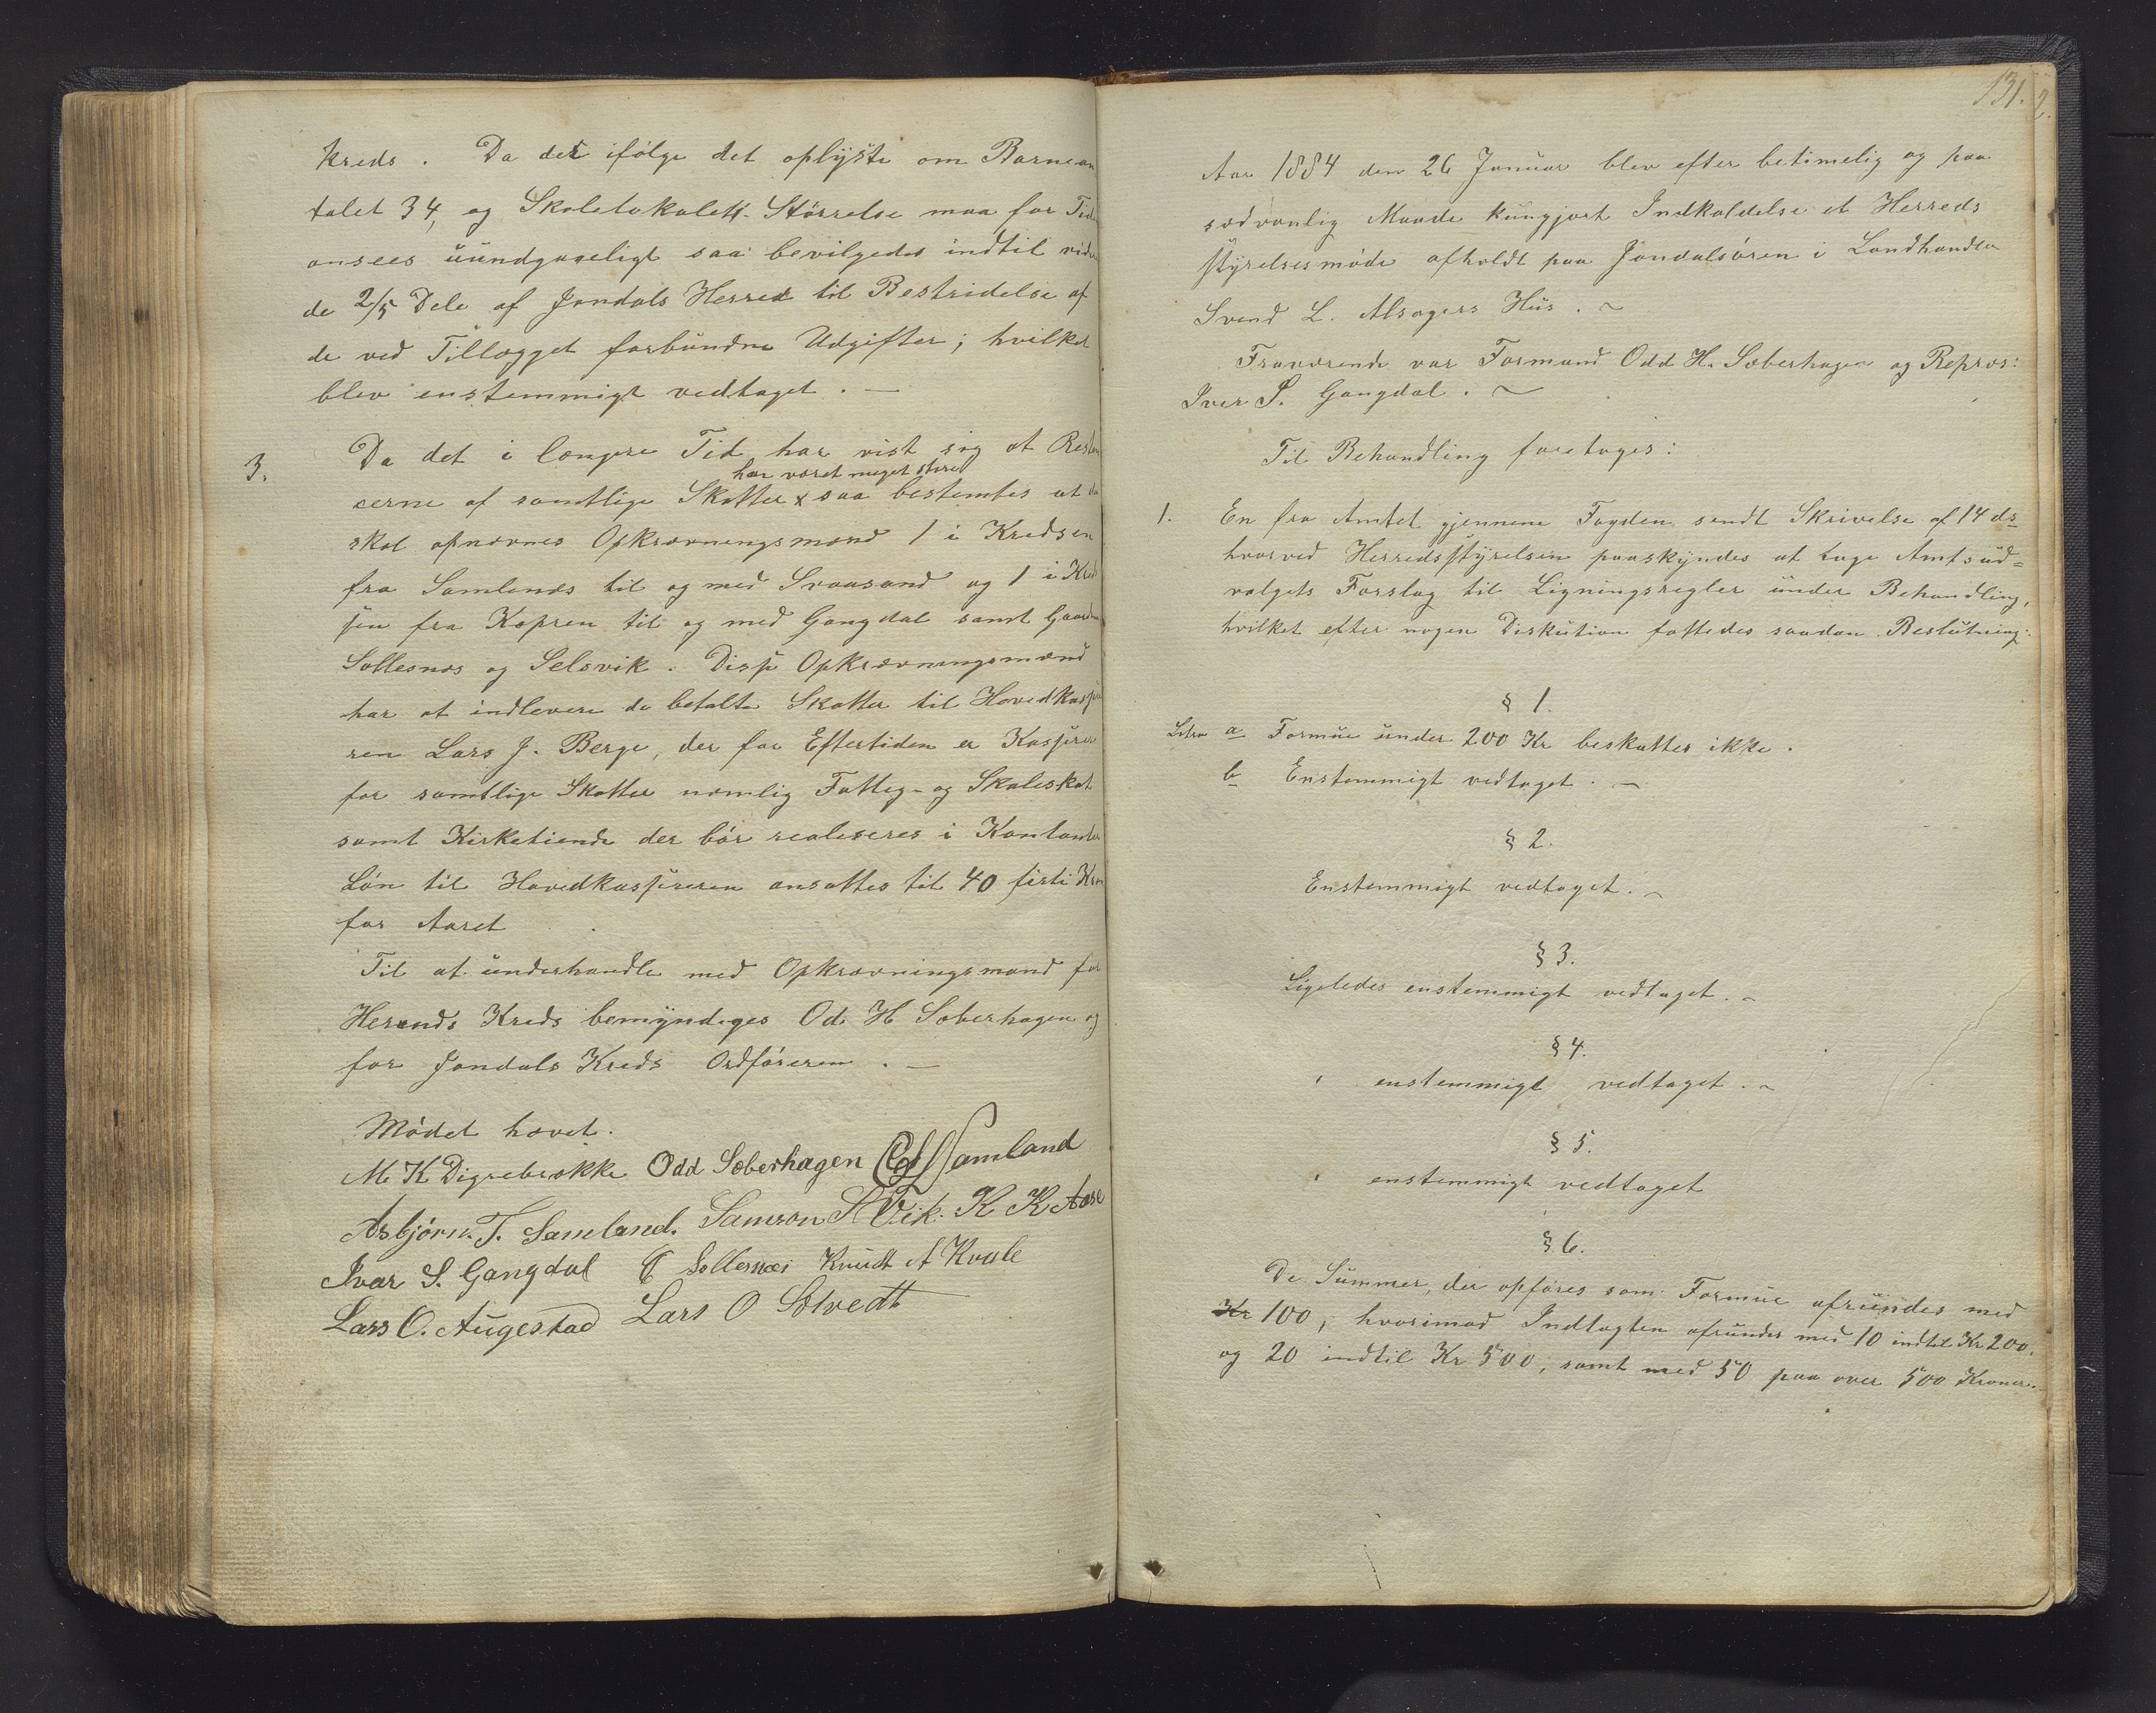 Kreds. Da det ifølge det oplyste om Barnean
talet 34, og Skolelokalets Størrelse maa for Tid
ansees uundgaaeligt saa bevilgedes indtil vid
de 2/5 Dele af Jondals Herred til Bestridelse af
de ved Tillægget forbundne Udgifter; hvilket
blev enstemmigt vedtaget. —
3. Da det i længere Tid har vist sig at Restan
har været meget store
cerne af samtlige Skatter x saa bestemtes at da
skal opnævnes Opkrævningsmænd 1 i Kredsen
fra Samlenæs til og med Svaasand og 1 i Kred
sen fra Kopren til og med Gangdal samt Gaarden
Sollesnæs og Selsvik. Disse Opkrævningsmænd
har at indlevere de betalte Skatter til Hovedkasse
ren Lars J. Berge, der for Eftertiden er Kasserer
for samtlige Skatter nemlig Fatteg- og Skoleskat
samt Kirketiende der bør realiseres i Kontanter
Løn til Hovedkassereren ansattes til 40 firti Kro
for Aaret
Til at underhandle med Opkrævningsmand for
Herands Kreds bemyndiges Od. H Soberhagen og
for Jondals Kreds Ordføreren. —
Mødet hævet.
M K Digrebrække Odd Soberhagen Samland
Asbjørn T. Samland. Samson S Vik. K K Aase
Ivar S. Gangdal Sollesnæs Knudt A Kvale
Lars O. Augestad Lars O Solvedt
131.
2.
Aar 1884 den 26 Januar blev efter betimelig og paa
sædvanlig Maade kungjort Indkaldelse et Herreds
styrelsesmøde afholdt paa Jondalsøren i Landhandler
Svend L. Alsagers Hus. ~
Fraværende var Formand Odd H. Soberhagen og Repræs:
Iver S. Gangdal. ~
Til Behandling foretoges:
1. En fra Amtet gjennem Fogden sendt Skrivelse af 14 ds
hvorved Herredsstyrelsen paaskyndes at tage Amtsud=
valgets Forslag til Ligningsregler under Behandling,
hvilket efter nogen Diskution fattedes saadan Beslutning:
§ 1.
Litra a Formue under 200 Kr beskattes ikke.
b Enstemmigt vedtaget. —
§ 2.
Enstemmigt vedtaget. ~
§ 3.
Ligeledes enstemmigt vedtaget. ~
§ 4.
enstemmigt vedtaget. ~
§ 5.
enstemmigt vedtaget
§ 6.
De Summer, der opføres som Formue afrundes med
Kr 100, hvorimod Indtægten afrundes med 10 indtil Kr 200.
og 20 indtil Kr 500, samt med 50 paa over 500 Kroner.